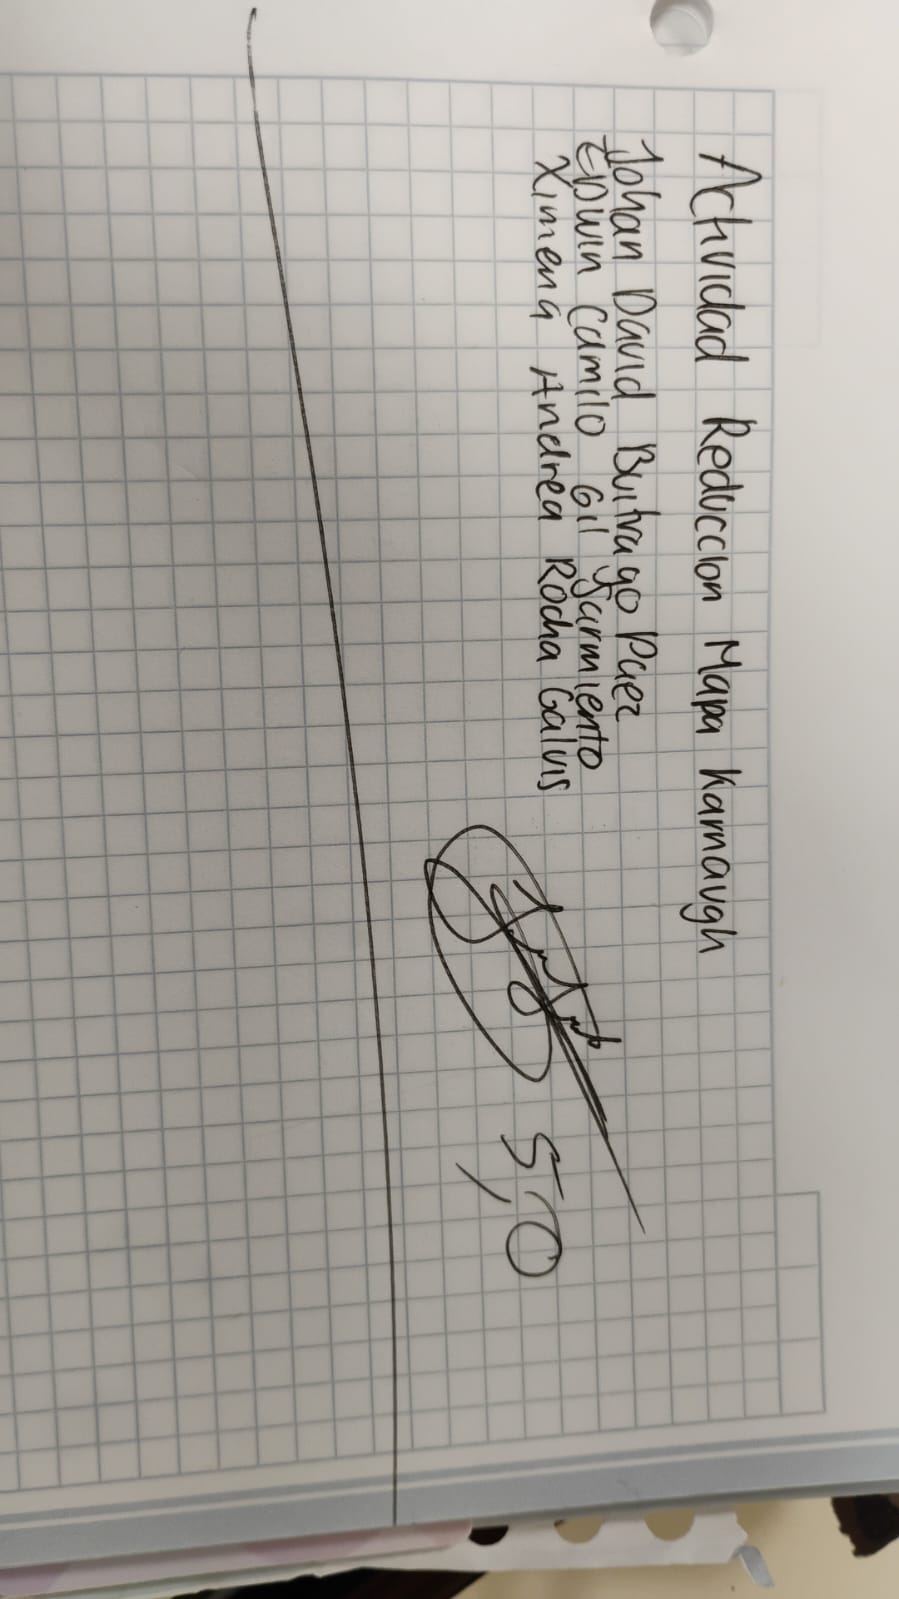 Actividad Reduccion Mapa Karnaugh
Johan David Buitrago Paez
Edwin Camilo Gil Sarmiento
Ximena Andrea Rocha Galvis
5,0